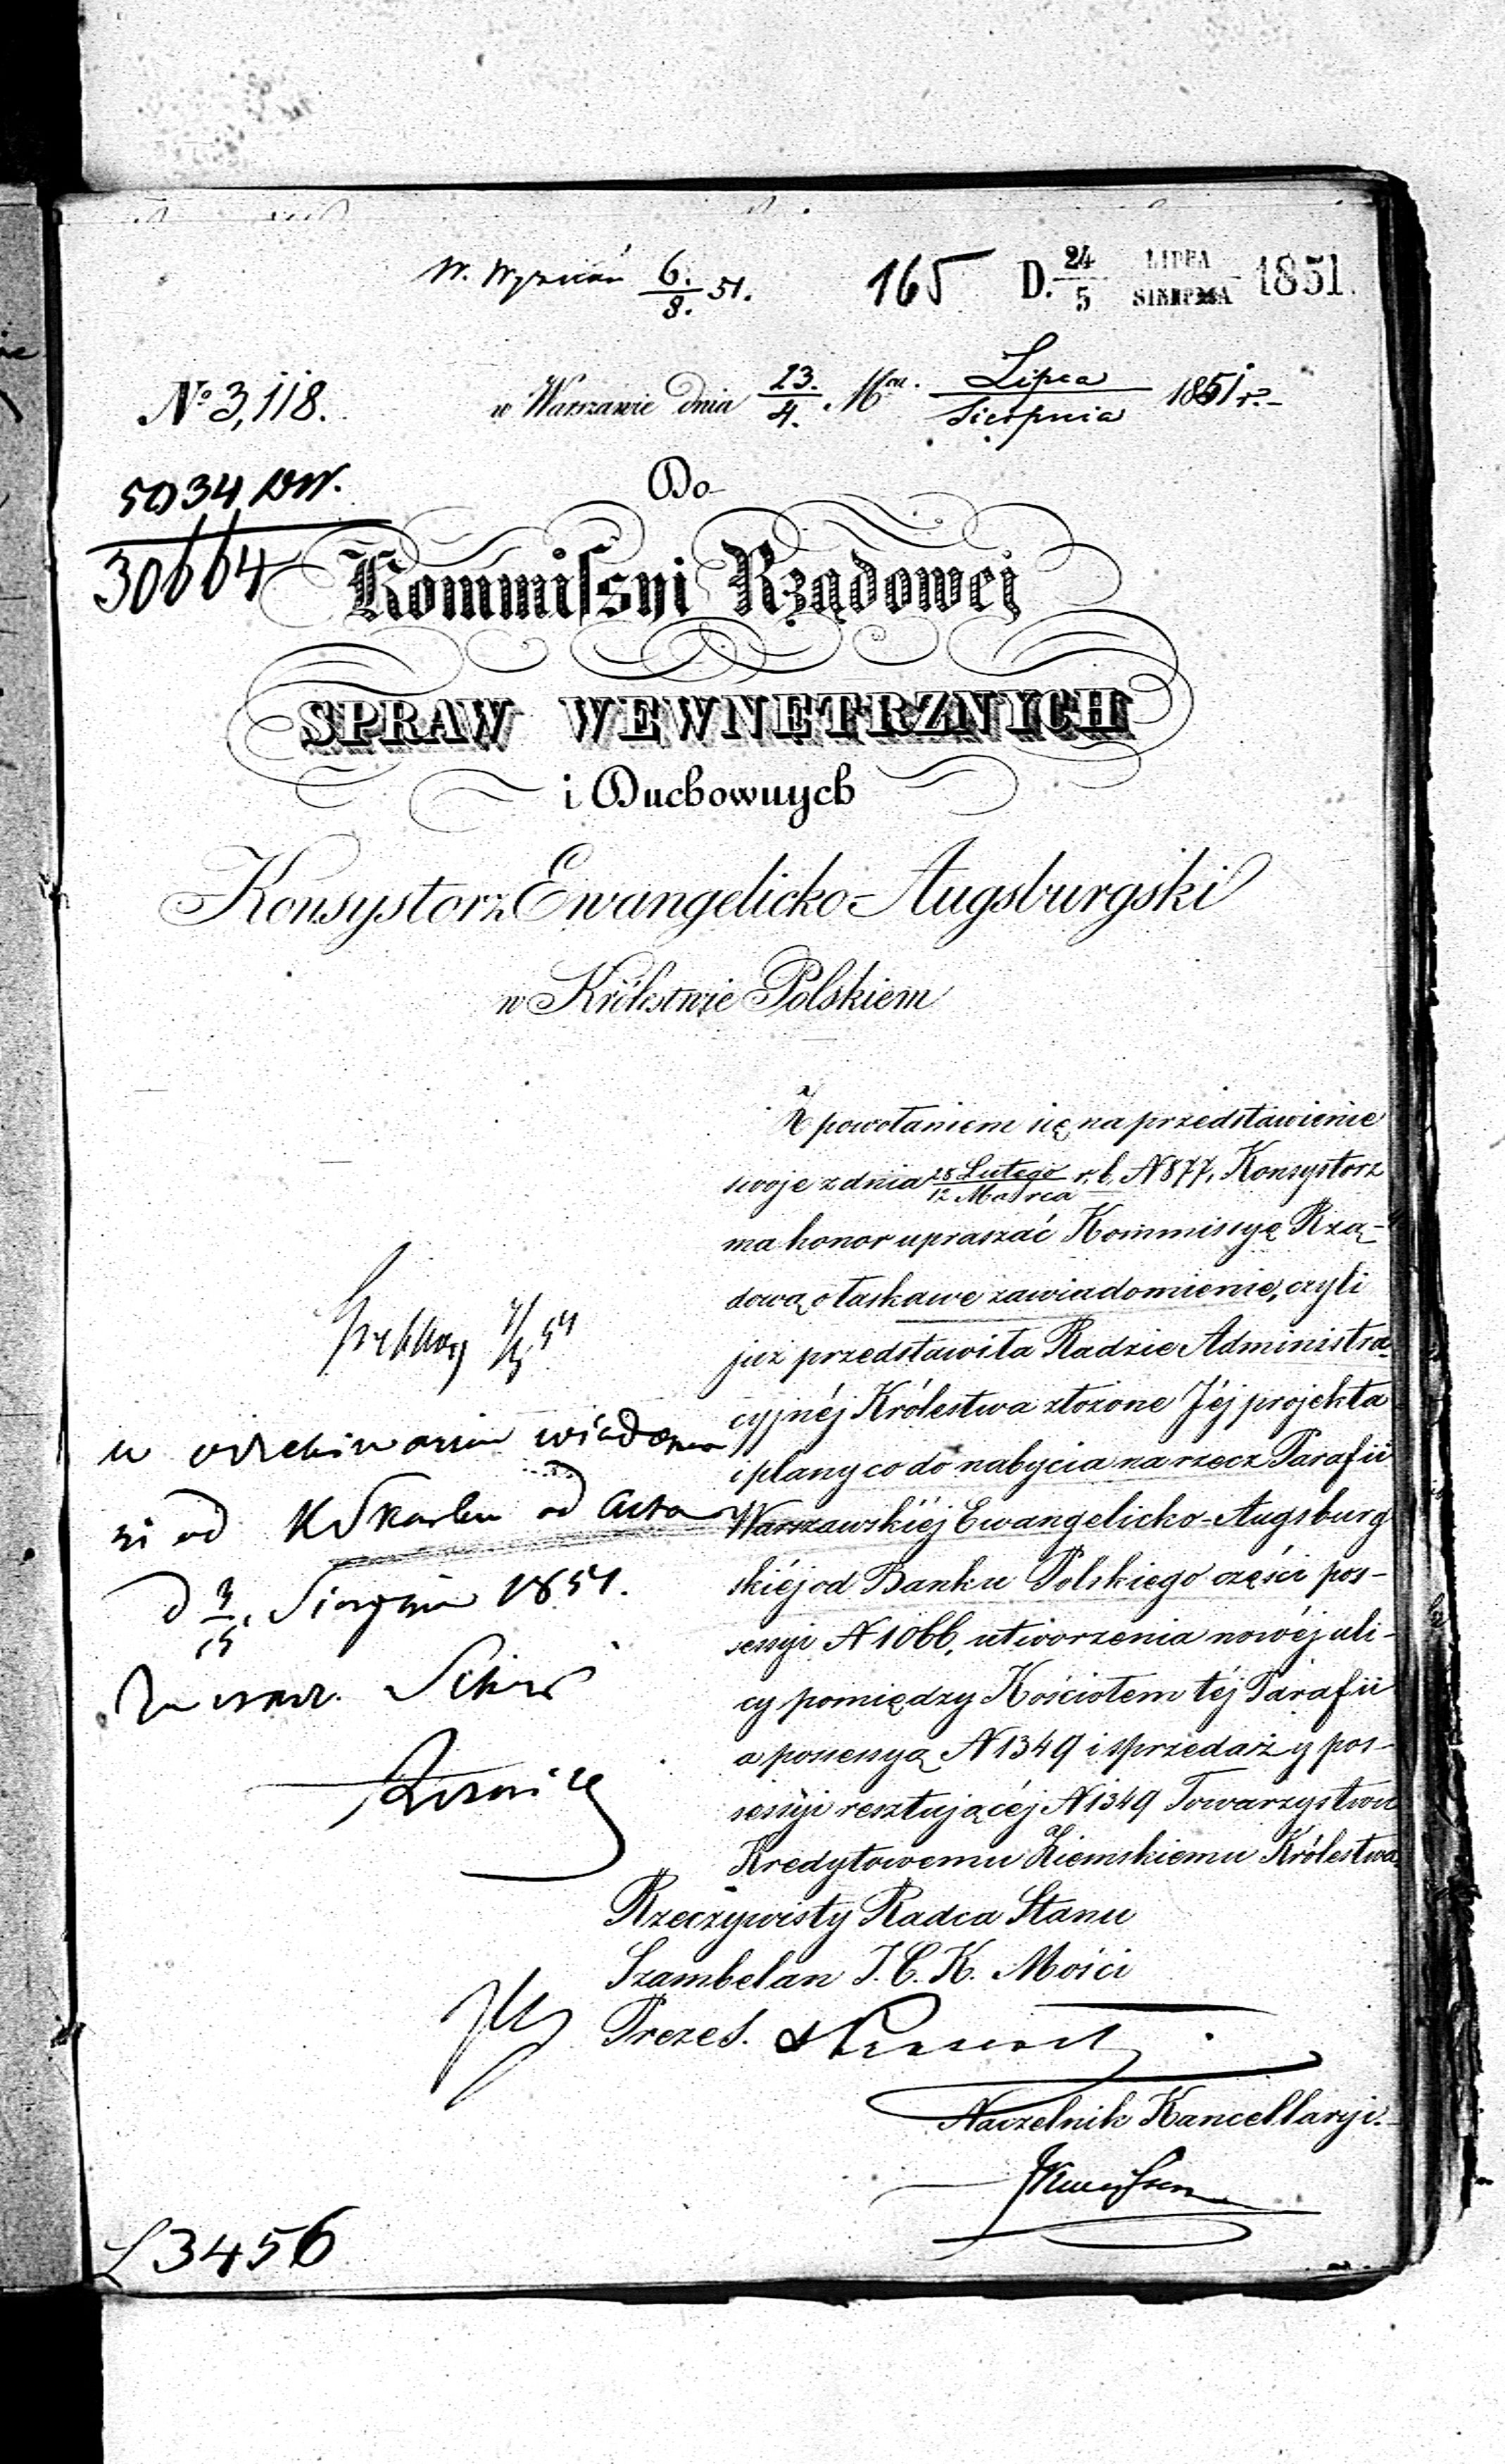 W. Wyznań 6./8. 51.
165
D. 24/5 LIPCA/SIERPNIA 1851.
№ 3,118.
w Warszawie dnia 23./4. Mca. Lipca/Sierpnia 1851 r.
5034
30664
Do
Kommissyi Rządowej
SPRAW WEWNĘTRZNYCH
i Duchownych
Konsystorz Ewangelicko-Augsburgski
w Królestwie Polskiem
Z powołaniem się na przedstawienie
swoje z dnia 28 Lutego/12 Marca r. b. N 877, Konsystorz
ma honor upraszać Kommissyę Rzą-
dową o łaskawe zawiadomienie, czyli
już przedstawiła Radzie Administra-
cyjnéj Królestwa złożone Jéj projekta
i plany co do nabycia na rzecz Parafii
Warszawskiéj Ewangelicko-Augsburg
skiéj od Banku Polskiego części pos-
sessyi N 1066, utworzenia nowéj uli-
cy pomiędzy Kościołem téj Parafii
a possessyą N 1349 i sprzedaży pos-
sessyi resztującéj N 1349 Towarzystwu
Kredytowemu Ziemskiemu Królestwa.
w oczekiwaniu
od
Sierpnia 1851.
Rzeczywisty Radca Stanu
Szambelan J. C. K. Mości
Prezes.
Naczelnik Kancellaryi.
L 3456